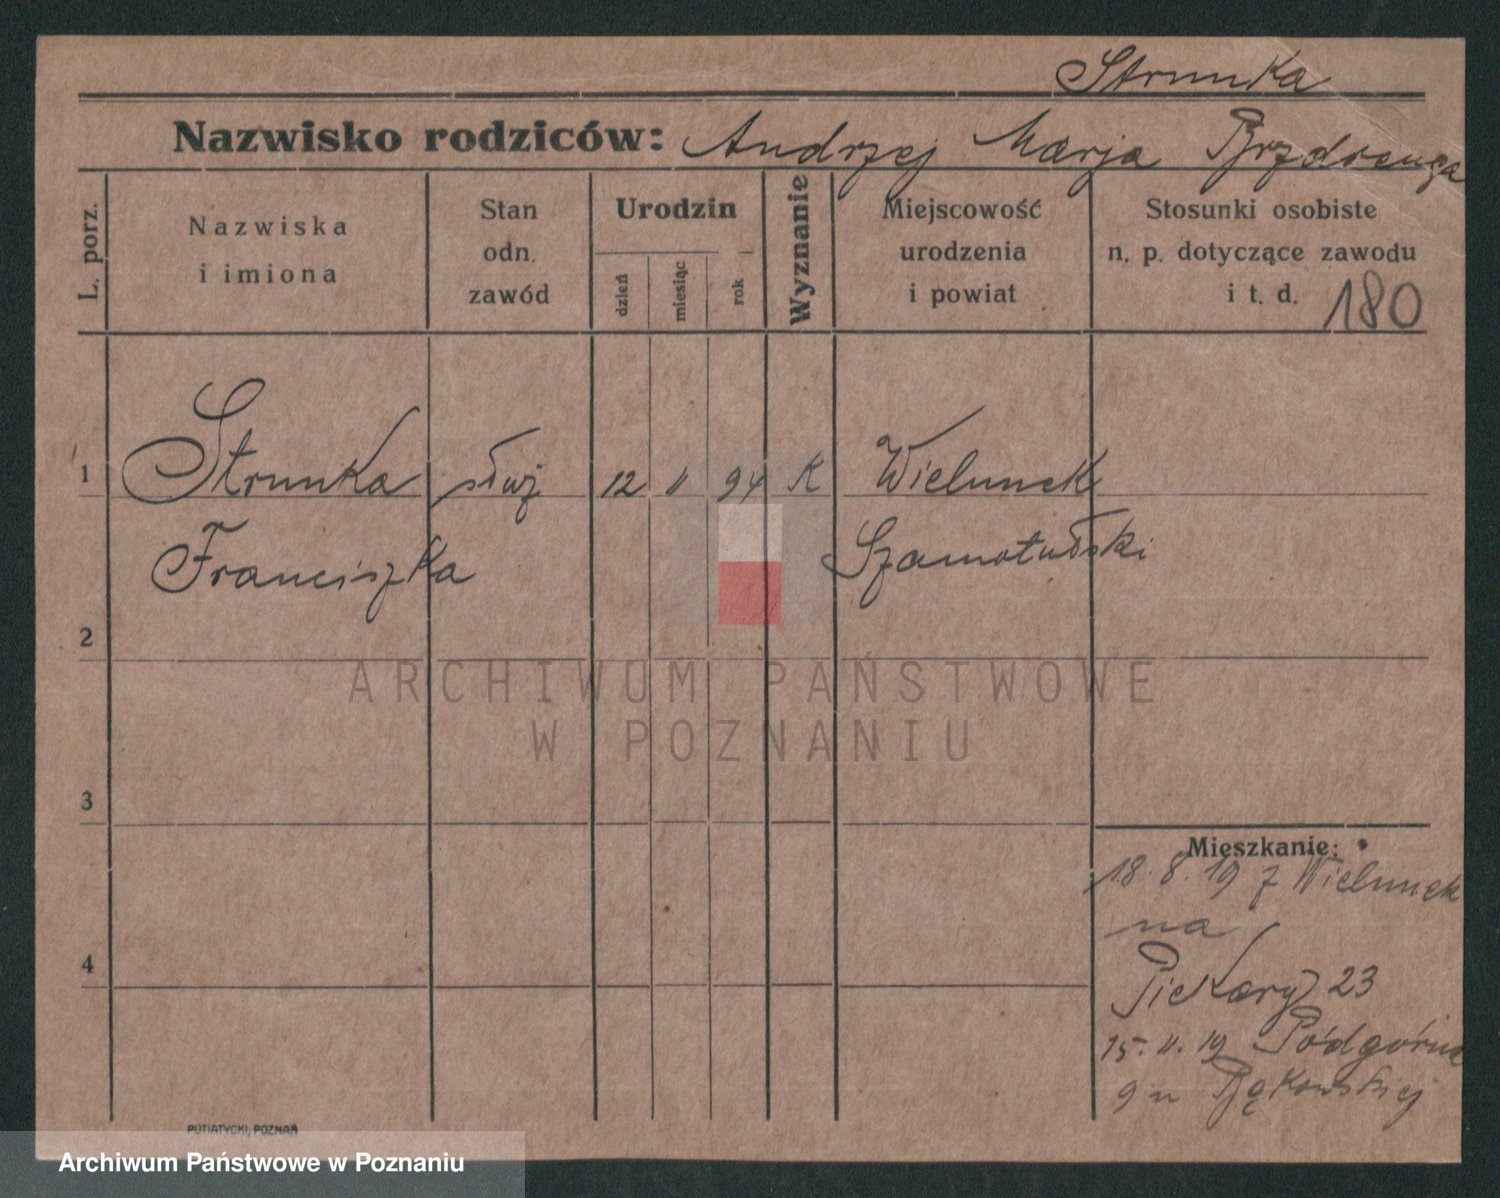 Strunka
Nazwisko rodziców: Andrzej Marja
L. porz.
Nazwiska
i imiona
Stan
odn.
zawód
Urodzin
dzień
miesiąc
rok
Wyznanie
Miejscowość
urodzenia
i powiat
Stosunki osobiste
n. p. dotyczące zawodu
i t. d. 180
1 Strunka służ 12 11 94 K Wielunek
Franciszka Szamotulski
2
3
4
ARCHIWUM PAŃSTWOWE
W POZNANIU
Mieszkanie:
18. 8. 19 z Wielunek
na
Piekary 23
15. 11. 19 Podgórna
9 u Bąkowskiej
PUTIATYCKI, POZNAŃ
Archiwum Państwowe w Poznaniu